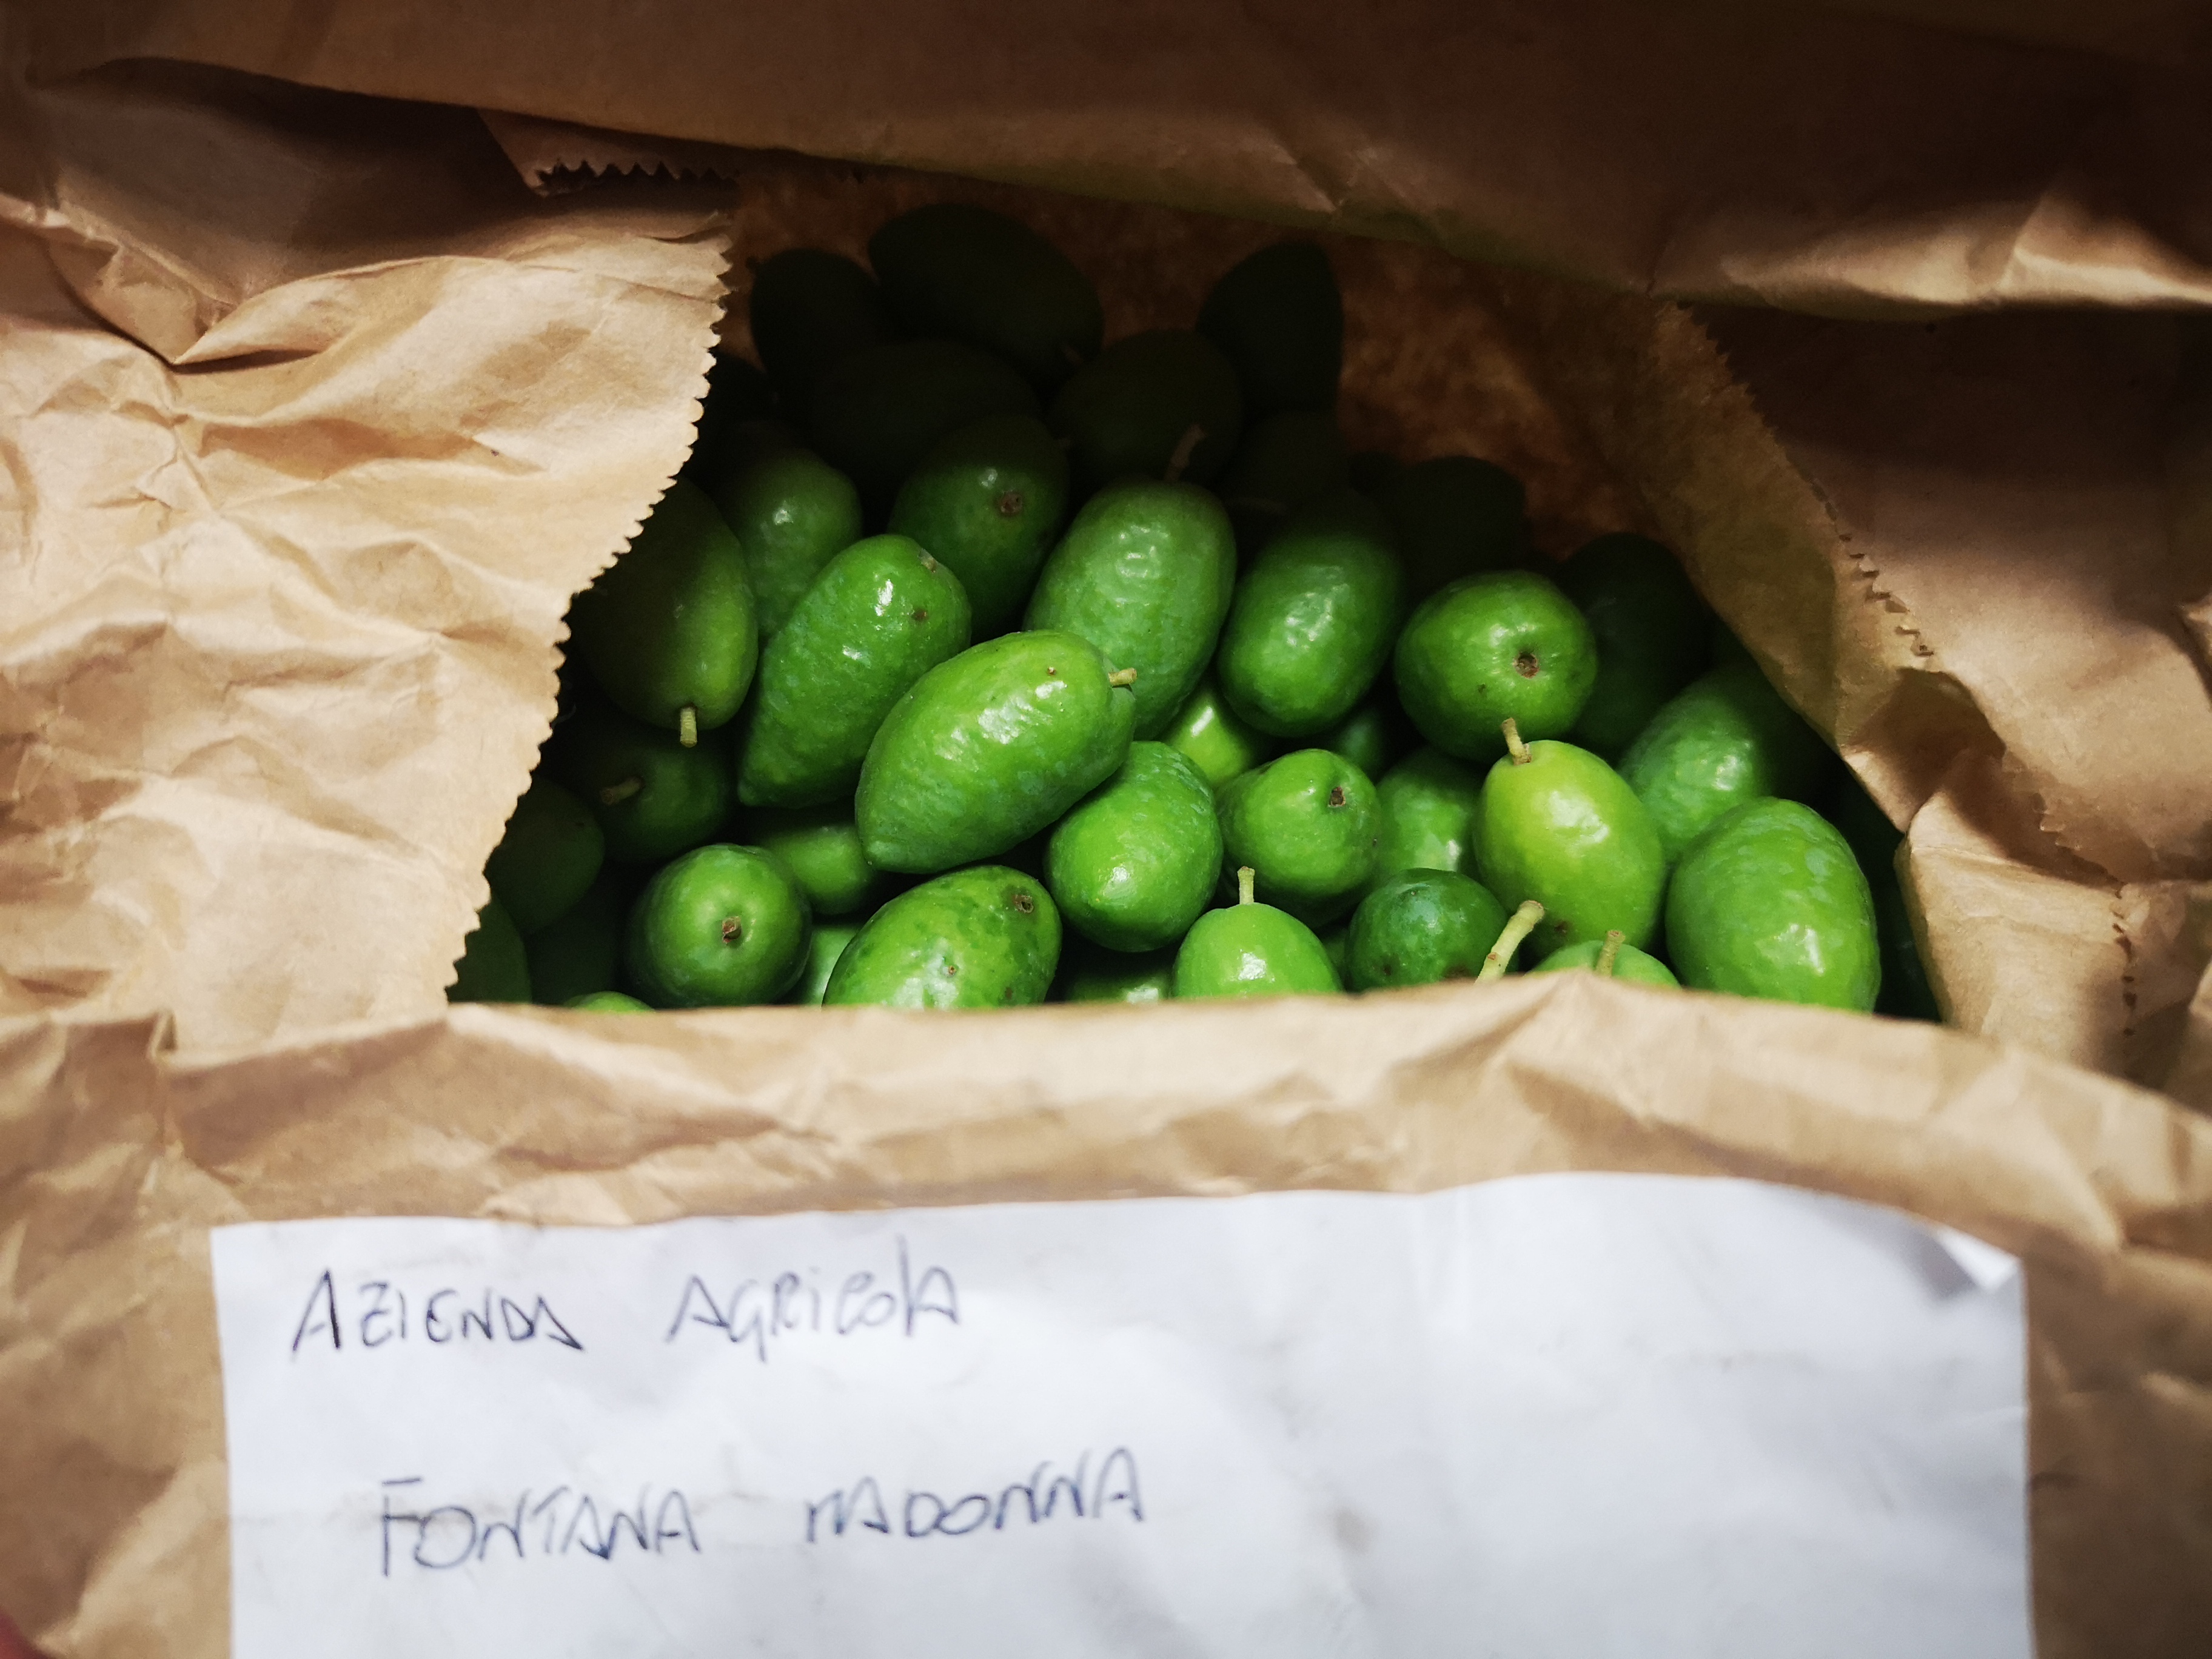 AZIENDA AGRICOLA
FONTANA MADONNA